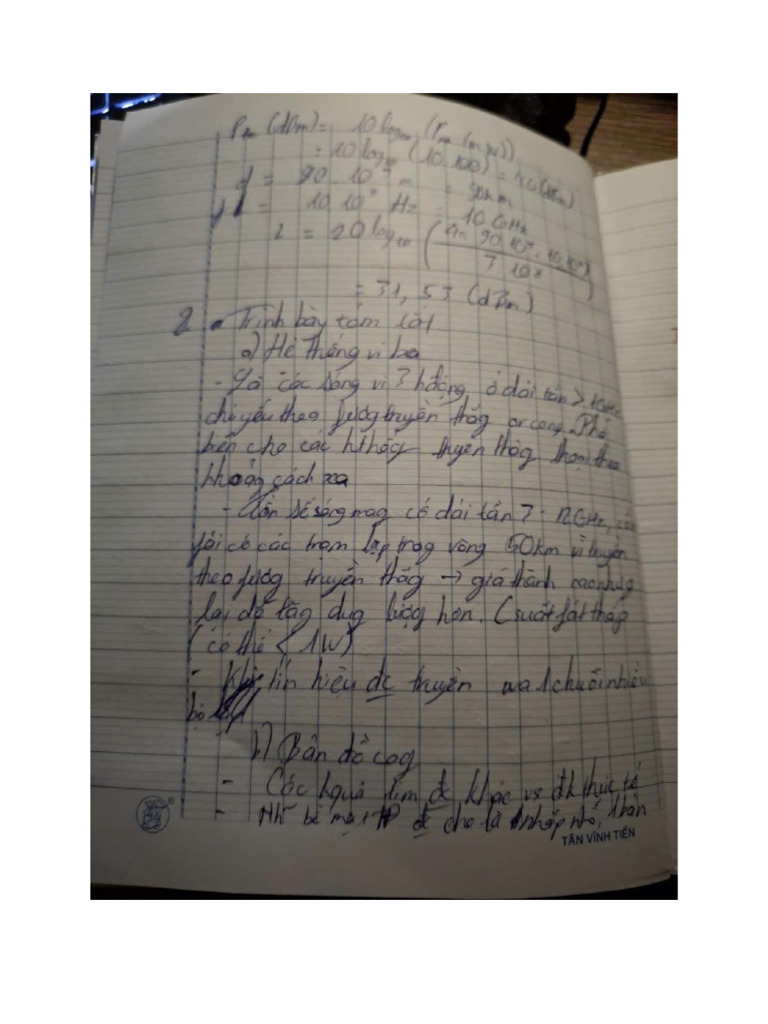 (dBm) = 10 log₁₀
= 10 log₁₀ (10.100) = 40 (dBm)
d = 90.10³ m = 90km
f = 10.10⁹ Hz = 10 GHz
L = 20 log₁₀ (4π.90.10³.10.10⁹ / 3.10⁸)
= 31,53 (dBm)
2. Trình bày tóm lát
a) Hệ thống vi ba
- Là các sóng vi 3 hđộng ở dải tần >
chủ yếu theo fươg truyền thẳg or cog. Phổ
biến cho các hthốg truyền thôg thoại theo
khoảng cách xa
- Tần số sóng mag có dải tần 7: 12GHz,
fải có các trạm lặp trog vòng 50km vì truyền
theo fươg truyền thẳg → giá thành cao nhưg
lại dễ tăg dug lượg hơn. (suất fát thấp
(có thể < 1W)
- tín hiệu đc truyền wa 1 chuỗi nhiều
bộ lặp
b) Bản đồ cog
- Các kquả tìm đc khác vs đk thực tế
- bề mặt đc cho là nhấp nhô, 1 bán
TÂN VĨNH TIẾN